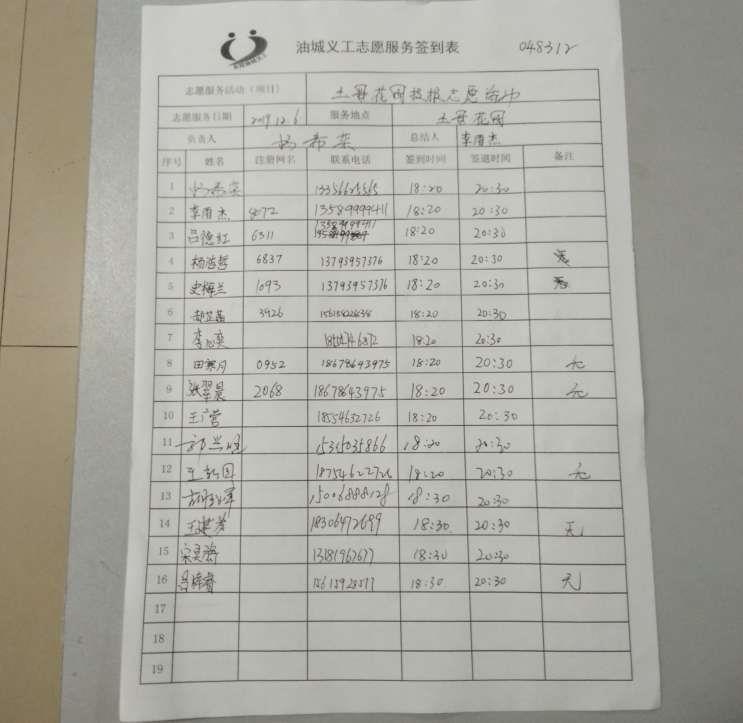 油城义工志愿服务签到表 048312
志愿服务活动（项目）
志愿服务日期 2019.12.6 服务地点
负责人 杨希荣 总结人 李雨杰
序号 姓名 注册网名 联系电话 签到时间 签退时间 备注
1 18:20 20:30
2 李雨杰 8072 13589999411 18:20 20:30
3 吕德红 6311 18:20 20:30
4 杨浩哲 6837 13793957376 18:20 20:30 无
5 史梅兰 1093 13793957376 18:20 20:30 无
6 3926 18:20 20:30
7 18:20 20:30
8 田寒月 0952 18678643975 18:20 20:30 无
9 张翠晨 2068 18678643975 18:20 20:30 无
10 王广营 18554632726 18:20 20:30
11 15315035866 18:20 20:30
12 18:20 20:30 无
13 15006888128 18:30 20:30
14 王建芳 18306472699 18:30 20:30 无
15 13181967677 18:30 20:30
16 18:30 20:30 无
17
18
19